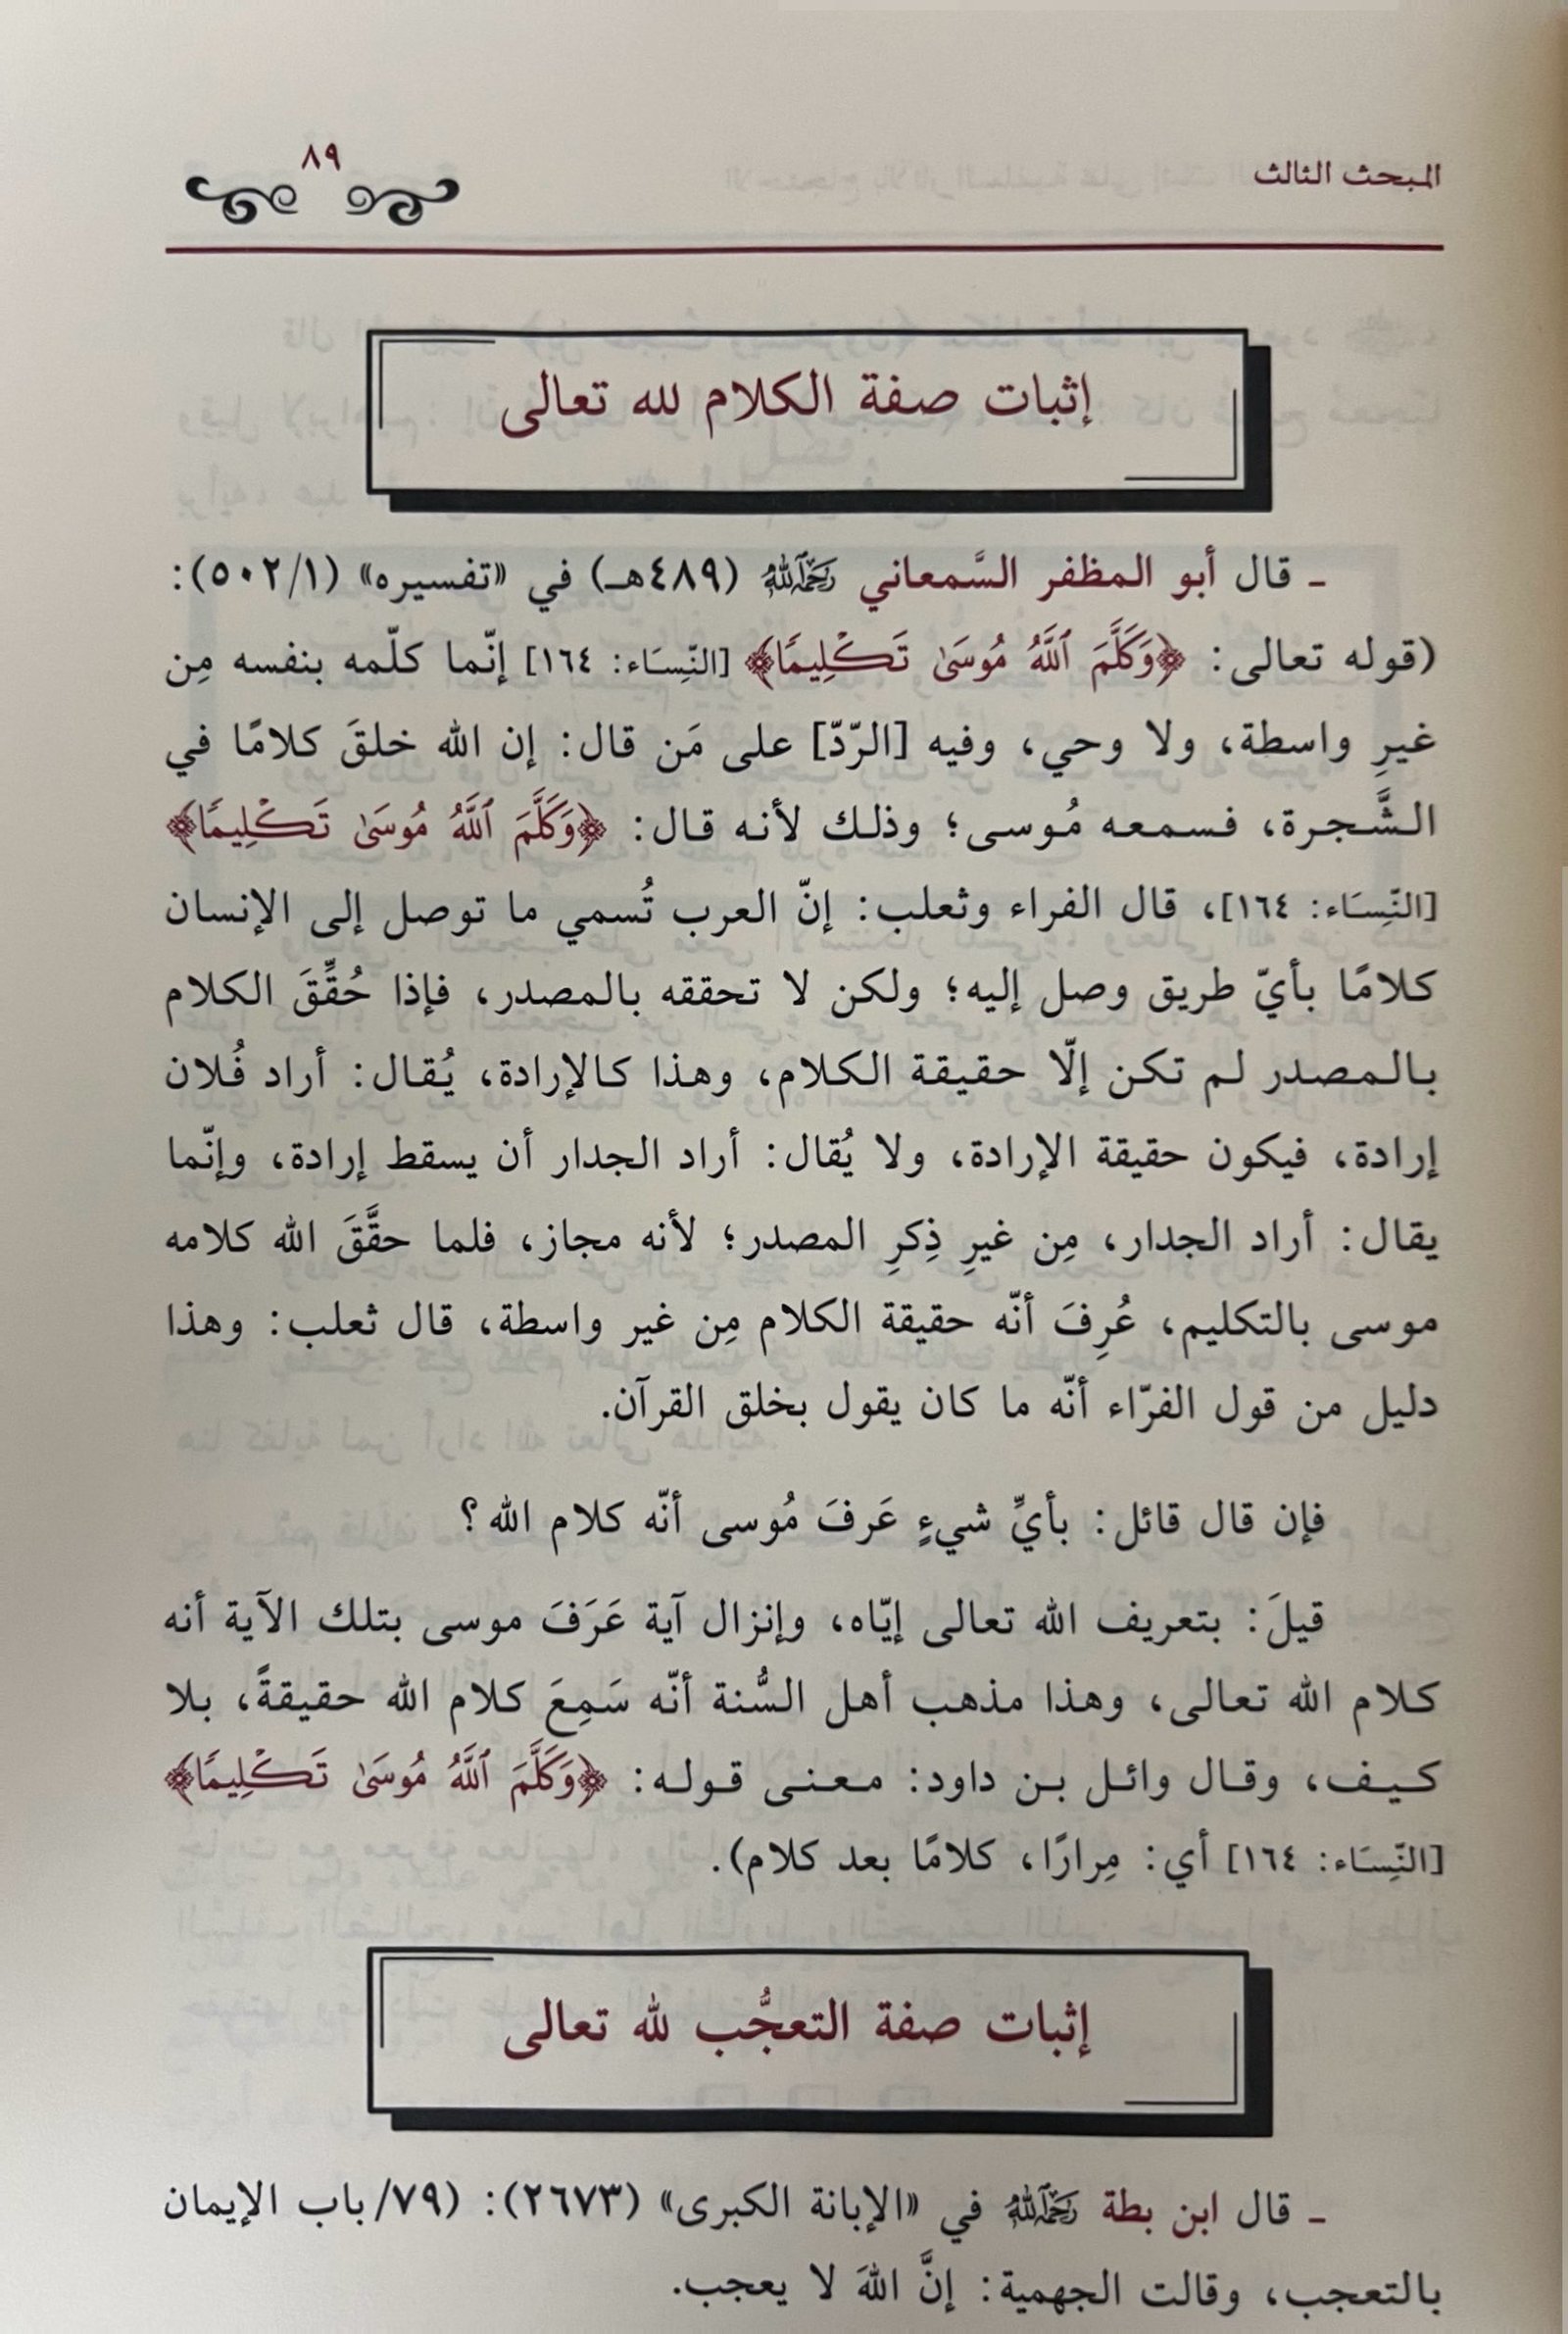 المبحث الثالث
٨٩
إثبات صفة الكلام لله تعالى
ـ قال أبو المظفر السَّمعاني رَحِمَهُ ٱللَّهُ (٤٨٩هـ) في «تفسيره» (١/ ٥٠٢):
(قوله تعالى: ﴿وَكَلَّمَ ٱللَّهُ مُوسَىٰ تَكْلِيمًا﴾ [النِّسَاء: ١٦٤] إنّما كلّمه بنفسه مِن
غيرِ واسطة، ولا وحي، وفيه [الرّدّ] على مَن قال: إن الله خلقَ كلامًا في
الشَّجرة، فسمعه مُوسى؛ وذلك لأنه قال: ﴿وَكَلَّمَ ٱللَّهُ مُوسَىٰ تَكْلِيمًا﴾
[النِّسَاء: ١٦٤]، قال الفراء وثعلب: إنّ العرب تُسمي ما توصل إلى الإنسان
كلامًا بأيّ طريق وصل إليه؛ ولكن لا تحققه بالمصدر، فإذا حُقِّقَ الكلام
بالمصدر لم تكن إلّا حقيقة الكلام، وهذا كالإرادة، يُقال: أراد فُلان
إرادة، فيكون حقيقة الإرادة، ولا يُقال: أراد الجدار أن يسقط إرادة، وإنّما
يقال: أراد الجدار، مِن غيرِ ذِكرِ المصدر؛ لأنه مجاز، فلما حقَّقَ الله كلامه
موسى بالتكليم، عُرِفَ أنّه حقيقة الكلام مِن غير واسطة، قال ثعلب: وهذا
دليل من قول الفرّاء أنّه ما كان يقول بخلق القرآن.
فإن قال قائل: بأيِّ شيءٍ عَرفَ مُوسى أنّه كلام الله؟
قيلَ: بتعريف الله تعالى إيّاه، وإنزال آية عَرَفَ موسى بتلك الآية أنه
كلام الله تعالى، وهذا مذهب أهل السُّنة أنّه سَمِعَ كلام الله حقيقةً، بلا
كيف، وقال وائل بن داود: معنى قوله: ﴿وَكَلَّمَ ٱللَّهُ مُوسَىٰ تَكْلِيمًا﴾
[النِّسَاء: ١٦٤] أي: مِرارًا، كلامًا بعد كلام).
إثبات صفة التعجُّب لله تعالى
ـ قال ابن بطة رَحِمَهُ ٱللَّهُ في «الإبانة الكبرى» (٢٦٧٣): (٧٩/ باب الإيمان
بالتعجب، وقالت الجهمية: إنَّ اللهَ لا يعجب.